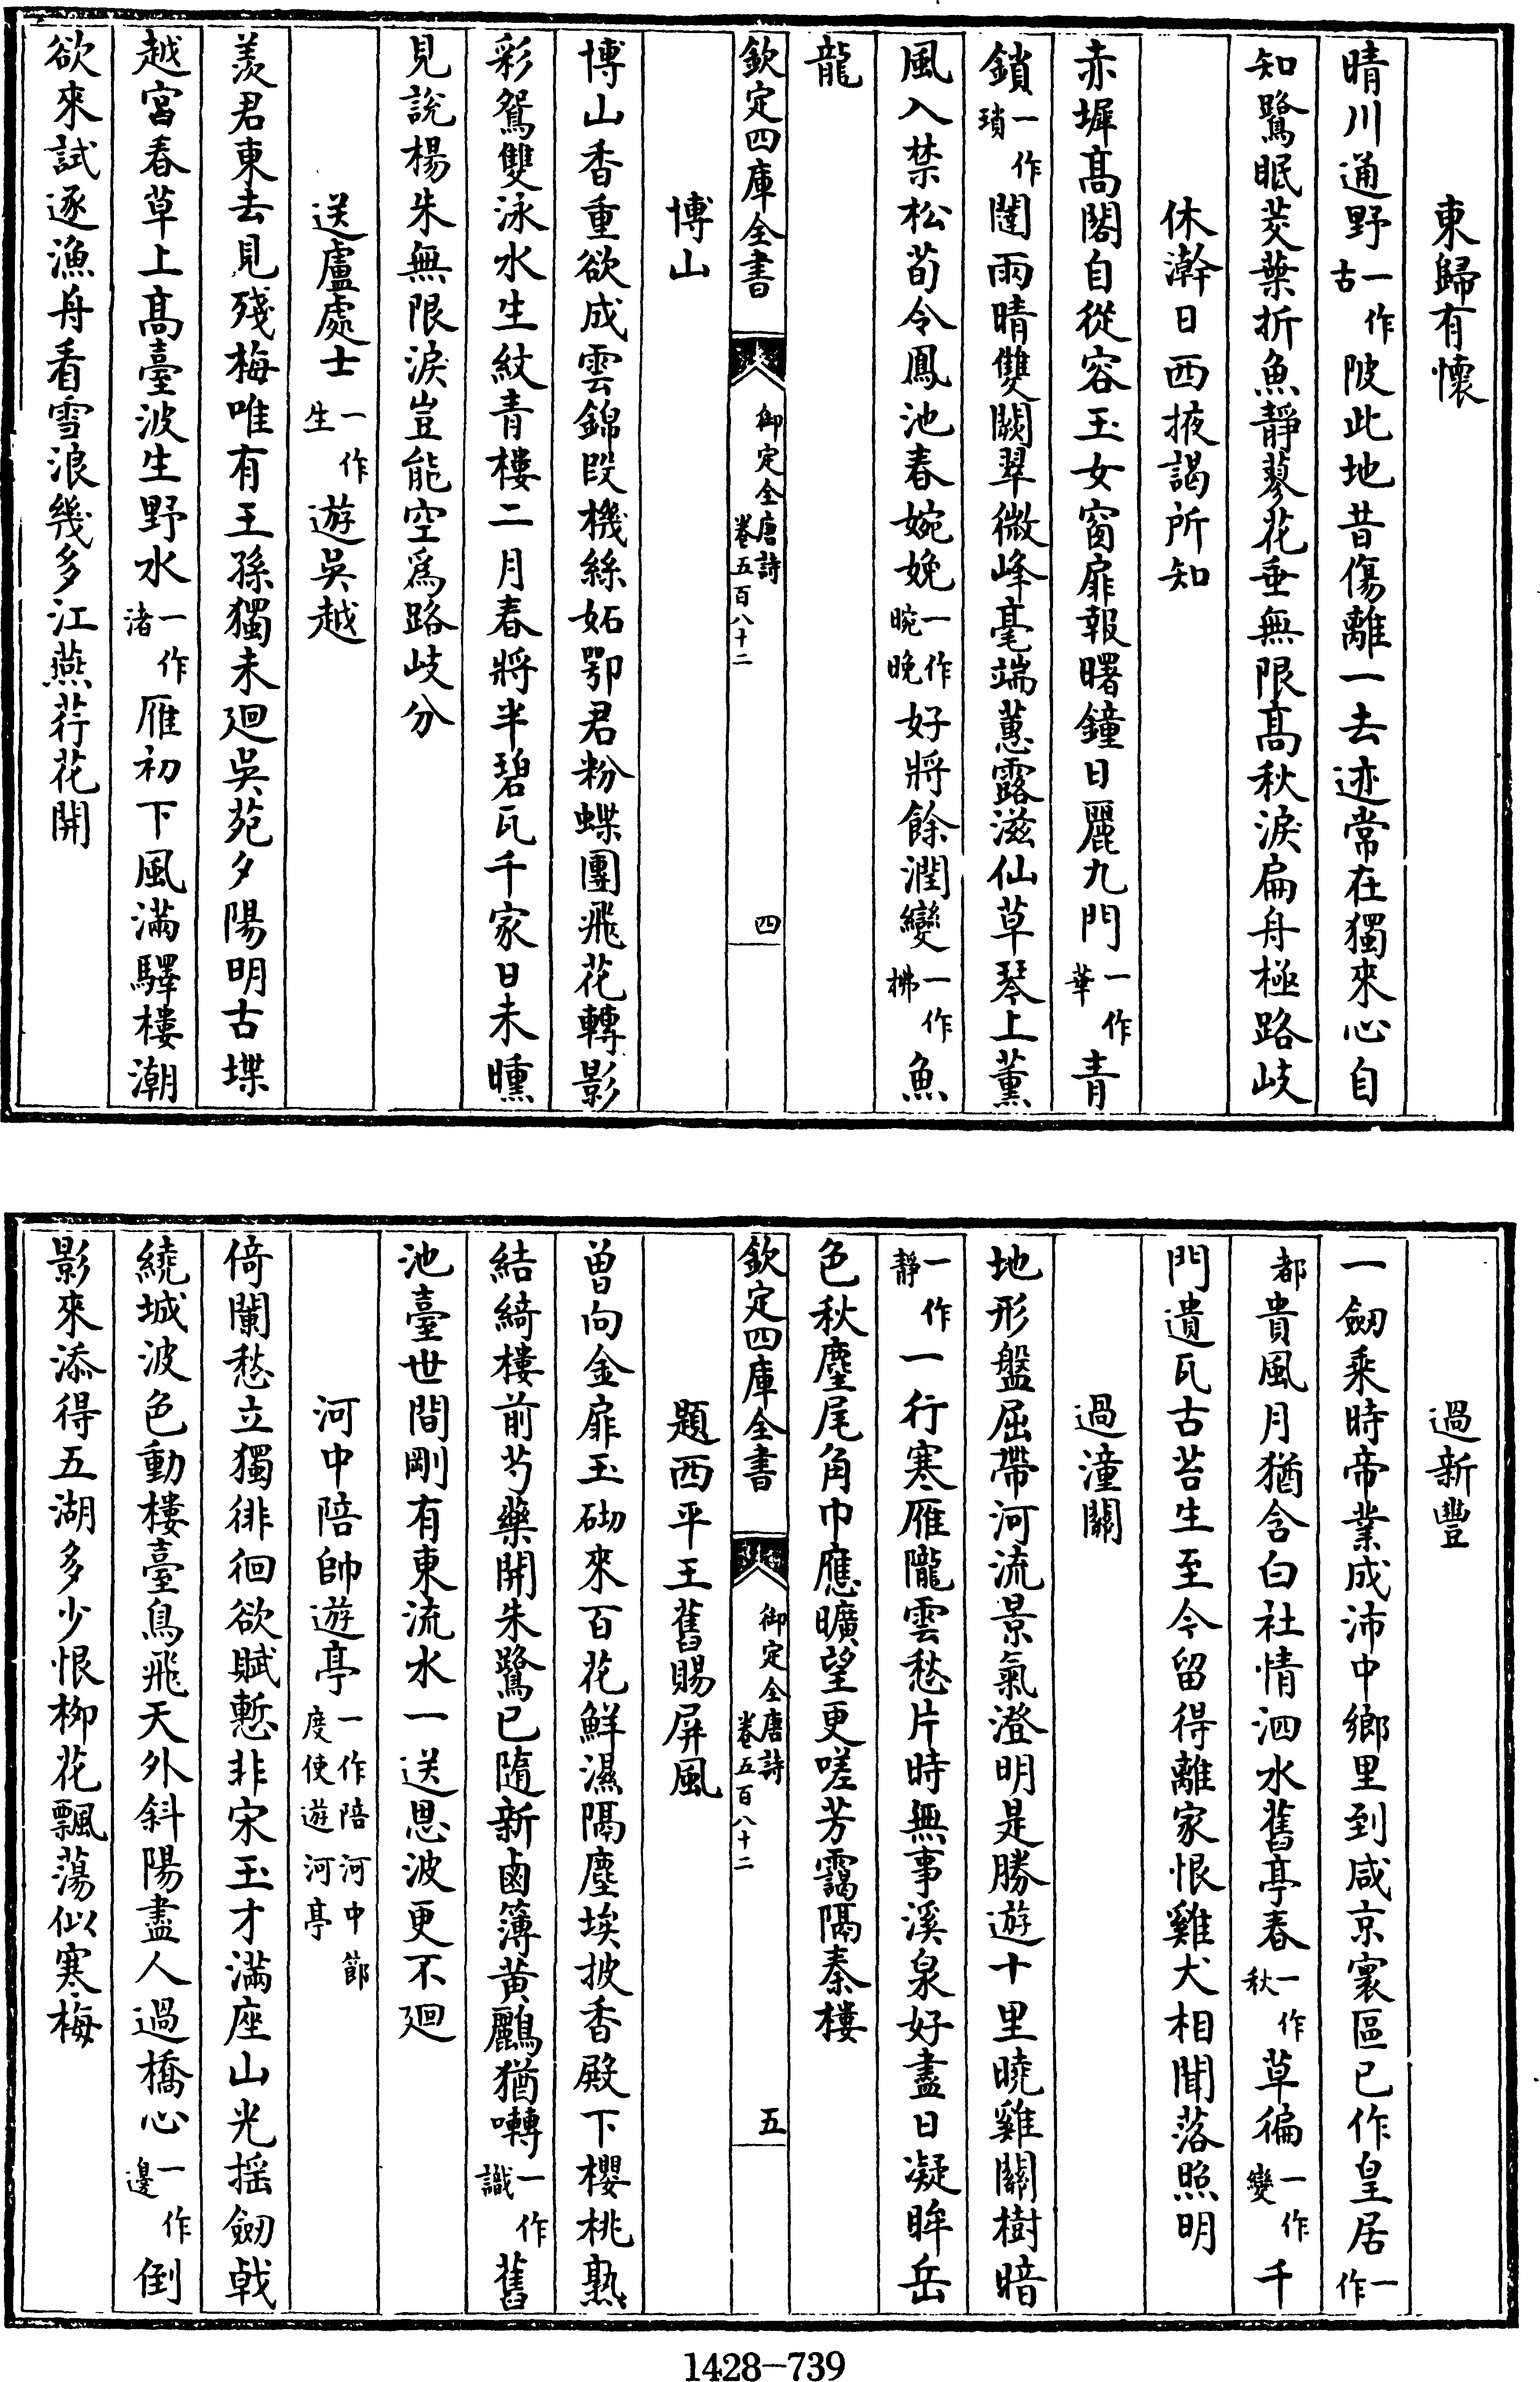 東歸有懷
晴川通野一作古陂此地昔傷離一去迹常在獨來心自
知鷺眠茭葉折魚靜蓼花垂無限髙秋淚扁舟極路岐
休澣日西掖謁所知
赤墀髙閣自從容玉女窗扉報曙鐘日麗九門一作華青
鎖一作瑣闥雨晴雙闕翠微峰毫端蕙露滋仙草琴上薰
風入禁松荀令鳳池春婉娩一作晼晚好將餘潤變一作拂魚
龍
欽定四庫全書
御定全唐詩
卷五百八十二
四
博山
博山香重欲成雲錦段機絲妬鄂君粉蝶團飛花轉影
彩鴛雙泳水生紋青樓二月春將半碧瓦千家日未曛
見說楊朱無限淚豈能空爲路岐分
送盧處士一作生遊吳越
羨君東去見殘梅唯有王孫獨未迴吳苑夕陽明古堞
越宮春草上髙臺波生野水一作渚雁初下風滿驛樓潮
欲來試逐漁舟看雪浪幾多江燕荇花開
過新豐
一劒乘時帝業成沛中鄉里到咸京寰區已作皇居一作
都貴風月猶含白社情泗水舊亭春一作秋草徧一作變千
門遺瓦古苔生至今留得離家恨雞犬相聞落照明
過潼關
地形盤屈帶河流景氣澄明是勝遊十里曉雞關樹暗
一作靜一行寒雁隴雲愁片時無事溪泉好盡日凝眸岳
色秋麈尾角巾應曠望更嗟芳靄隔秦樓
欽定四庫全書
御定全唐詩
卷五百八十二
五
題西平王舊賜屏風
曽向金扉玉砌來百花鮮濕隔塵埃披香殿下櫻桃熟
結綺樓前芍藥開朱鷺已隨新鹵簿黃鸝猶囀一作識舊
池臺世間剛有東流水一送恩波更不迴
河中陪帥遊亭一作陪河中節度使遊河亭
倚闌愁立獨徘徊欲賦慙非宋玉才滿座山光揺劒戟
繞城波色動樓臺鳥飛天外斜陽盡人過橋心一作邊倒
影來添得五湖多少恨栁花飄蕩似寒梅
1428-739